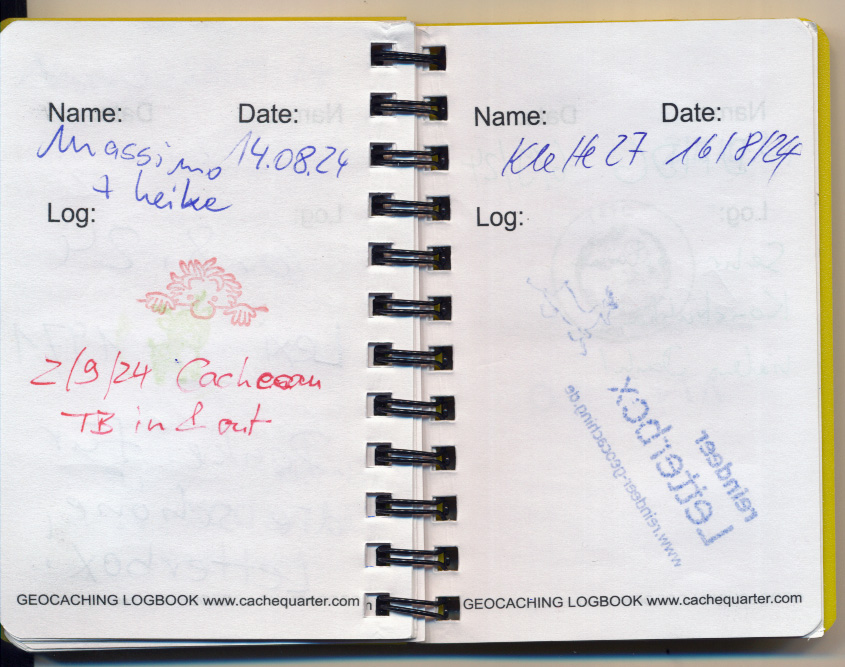 Name: Date:
Massimo 14.08.24
+ heike
Log:
2/9/24 Cachesau
TB in & out
GEOCACHING LOGBOOK www.cachequarter.com
Name: Date:
Klette 27 16/8/24
Log:
reindeer
Letterbox
www.reindeer-geocaching.de
GEOCACHING LOGBOOK www.cachequarter.com